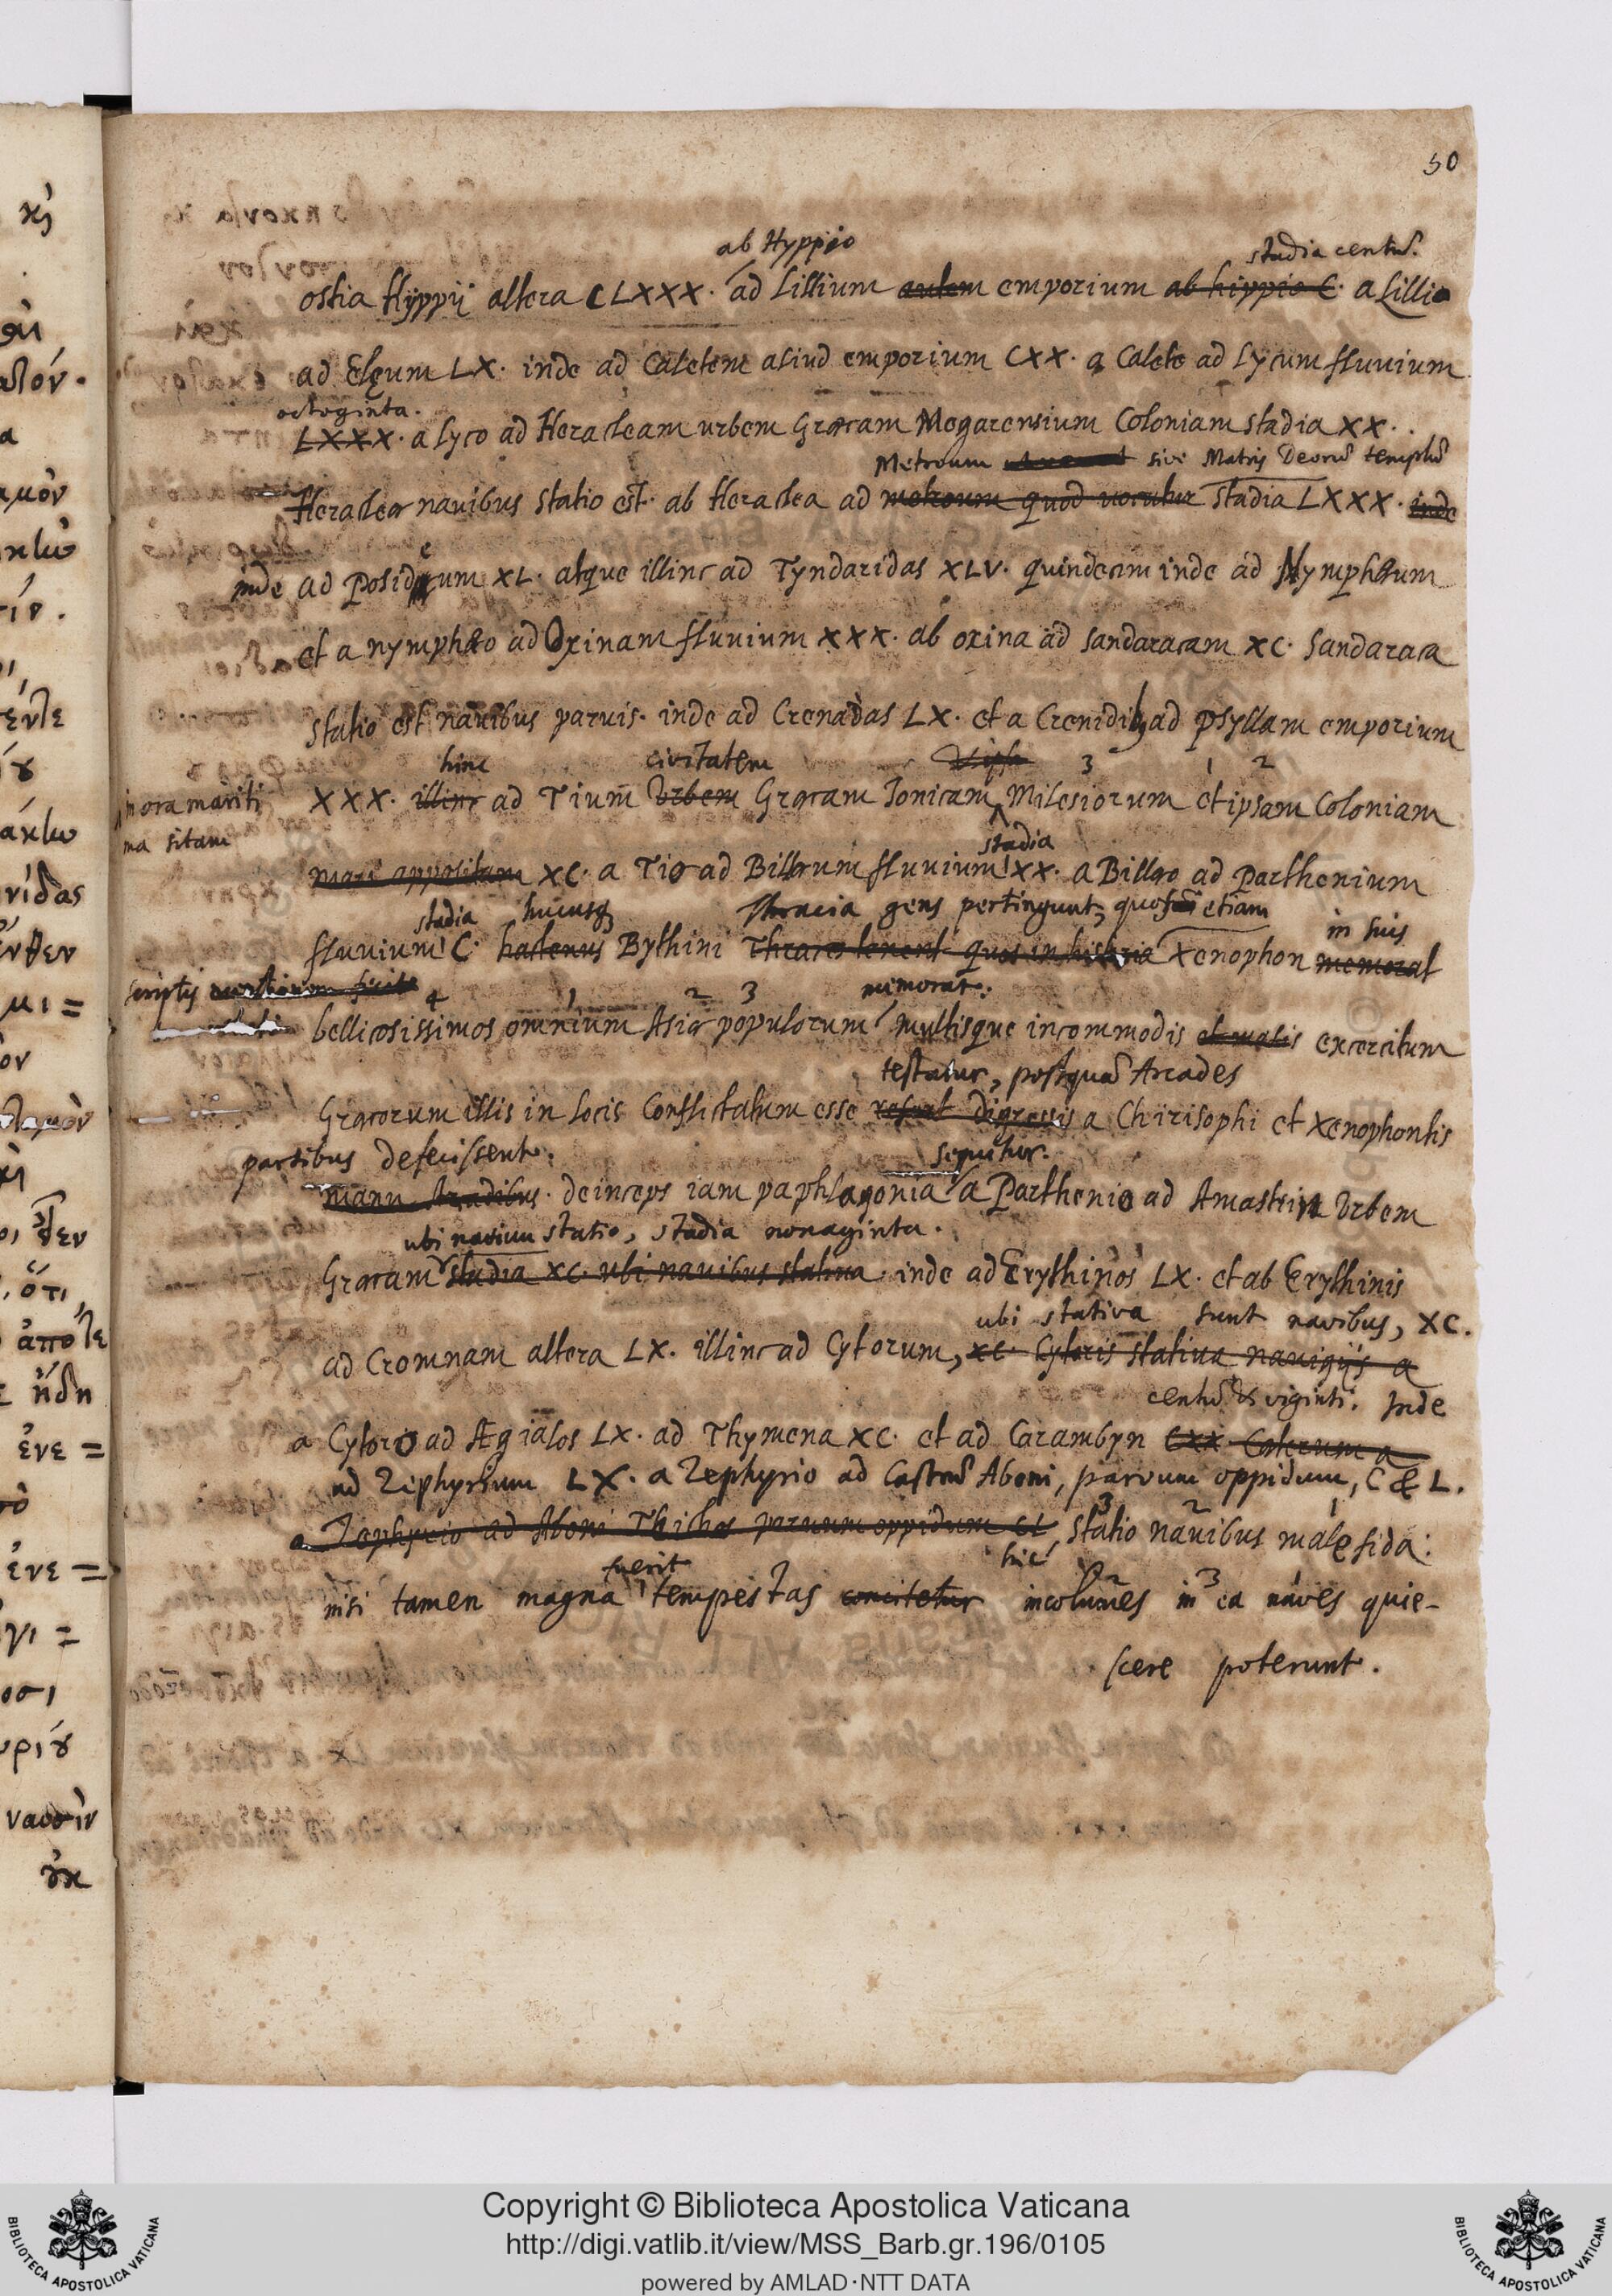 50
ab Hyppio
stadia centū.
ostia Hyppij altera CLXXX. ad Lillium autem emporium ab hippio C. a Lillio
ad Elęum LX. inde ad Caletem aliud emporium CXX. a Calete ad Lycum fluuium
octoginta.
LXXX. a Lyco ad Heracleam urbem Græcam Megarensium Coloniam stadia XX.
Metroum sive Matris Deorū templū
Heracleæ nauibus statio est. ab Heraclea ad metroum quod uocatur stadia LXXX. inde
inde ad Posideum XL. atque illinc ad Tyndaridas XLV. quindecim inde ad Nymphæum
et a nymphæo ad Oxinam fluuium XXX. ab oxina ad Sandaracam XC. Sandaraca
statio est nauibus paruis. inde ad Crenadas LX. et a Crenidib, ad Psyllam emporium
hinc civitatem 3 1 2
in ora mariti
XXX. illinc ad Tium Urbem Græcam Ionicam Milesiorum et ipsam Coloniam
ma sitam
stadia
mari appositam XC. a Tio ad Billæum fluuium XX. a Billæo ad Parthenium
stadia hucusq Thracia gens pertingunt, quos etiam in suis
fluvium C. hactenus Bythini Thraces tenent quos in historia Xenophon memorat
scriptis
4 1 2 3 memorat:
bellicosissimos omnium Asiæ populorum multisque incommodis et malis exercitum
testatur, postquā Arcades
Græcorum illis in locis Conflictatum esse refert digressis a Chirisophi et Xenophontis
partibus defecissent:
sequitur.
manu Arcadibus. deinceps iam paphlagonia a Parthenio ad Amastrin Urbem
ubi navium statio, stadia nonaginta.
Græcam stadia XC. ubi nauibus statiua. inde ad Erythinos LX. et ab Erythinis
ubi stativa sunt navibus, XC.
ad Cromnam altera LX. illinc ad Cytorum, XC. Cytoris statiua nauigijs a
centū & viginti. Inde
a Cytoro ad Ægialos LX. ad Thymena XC. et ad Carambyn CXX. Caterum a
ad Zephyrium LX. a Zephyrio ad Castrū Aboni, parvum oppidum, C & L.
3 2 1
a Zephyrio ad Aboni Thichos paruum oppidum CL statio nauibus male fida:
fuerit hic 2 3 1
nisi tamen magna tempestas concitetur incolumes in ea naves quie-
scere poterunt.
Copyright © Biblioteca Apostolica Vaticana
http://digi.vatlib.it/view/MSS_Barb.gr.196/0105
powered by AMLAD·NTT DATA
BIBLIOTECA APOSTOLICA VATICANA
BIBLIOTECA APOSTOLICA VATICANA